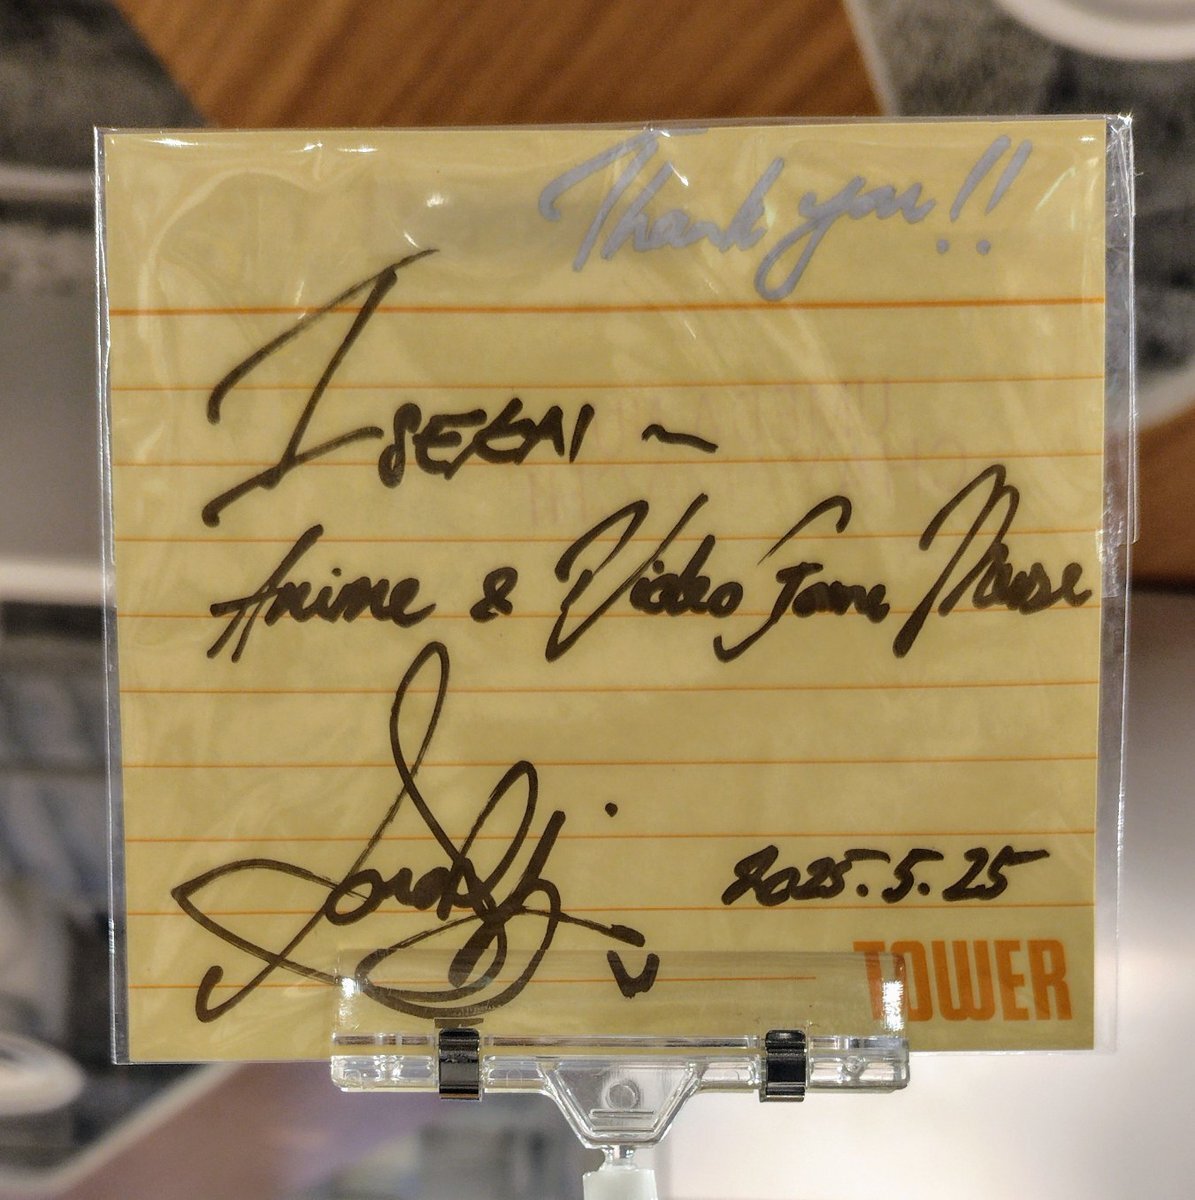 Thank you!!
ISEKAI ~
Anime & Video Game Muse
2025.5.25
TOWER